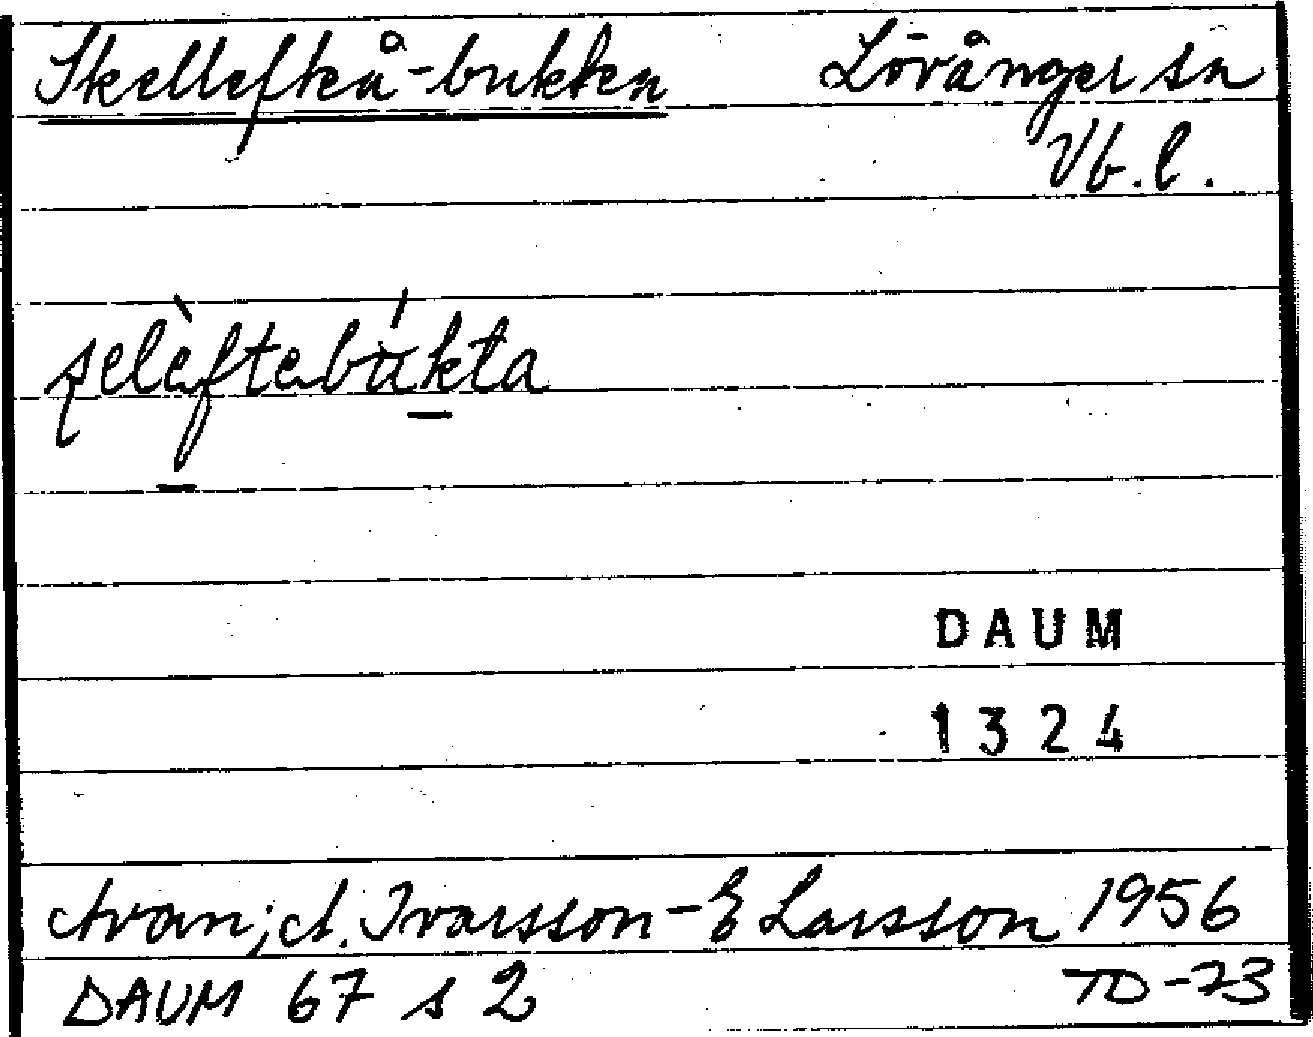 Skellefteå-bukten Lövånger sn
Vb.l.
şelèftebúkta
DAUM
1324
Avan; A. Ivarsson-E Larsson 1956
DAUM 67 s 2 TD-73